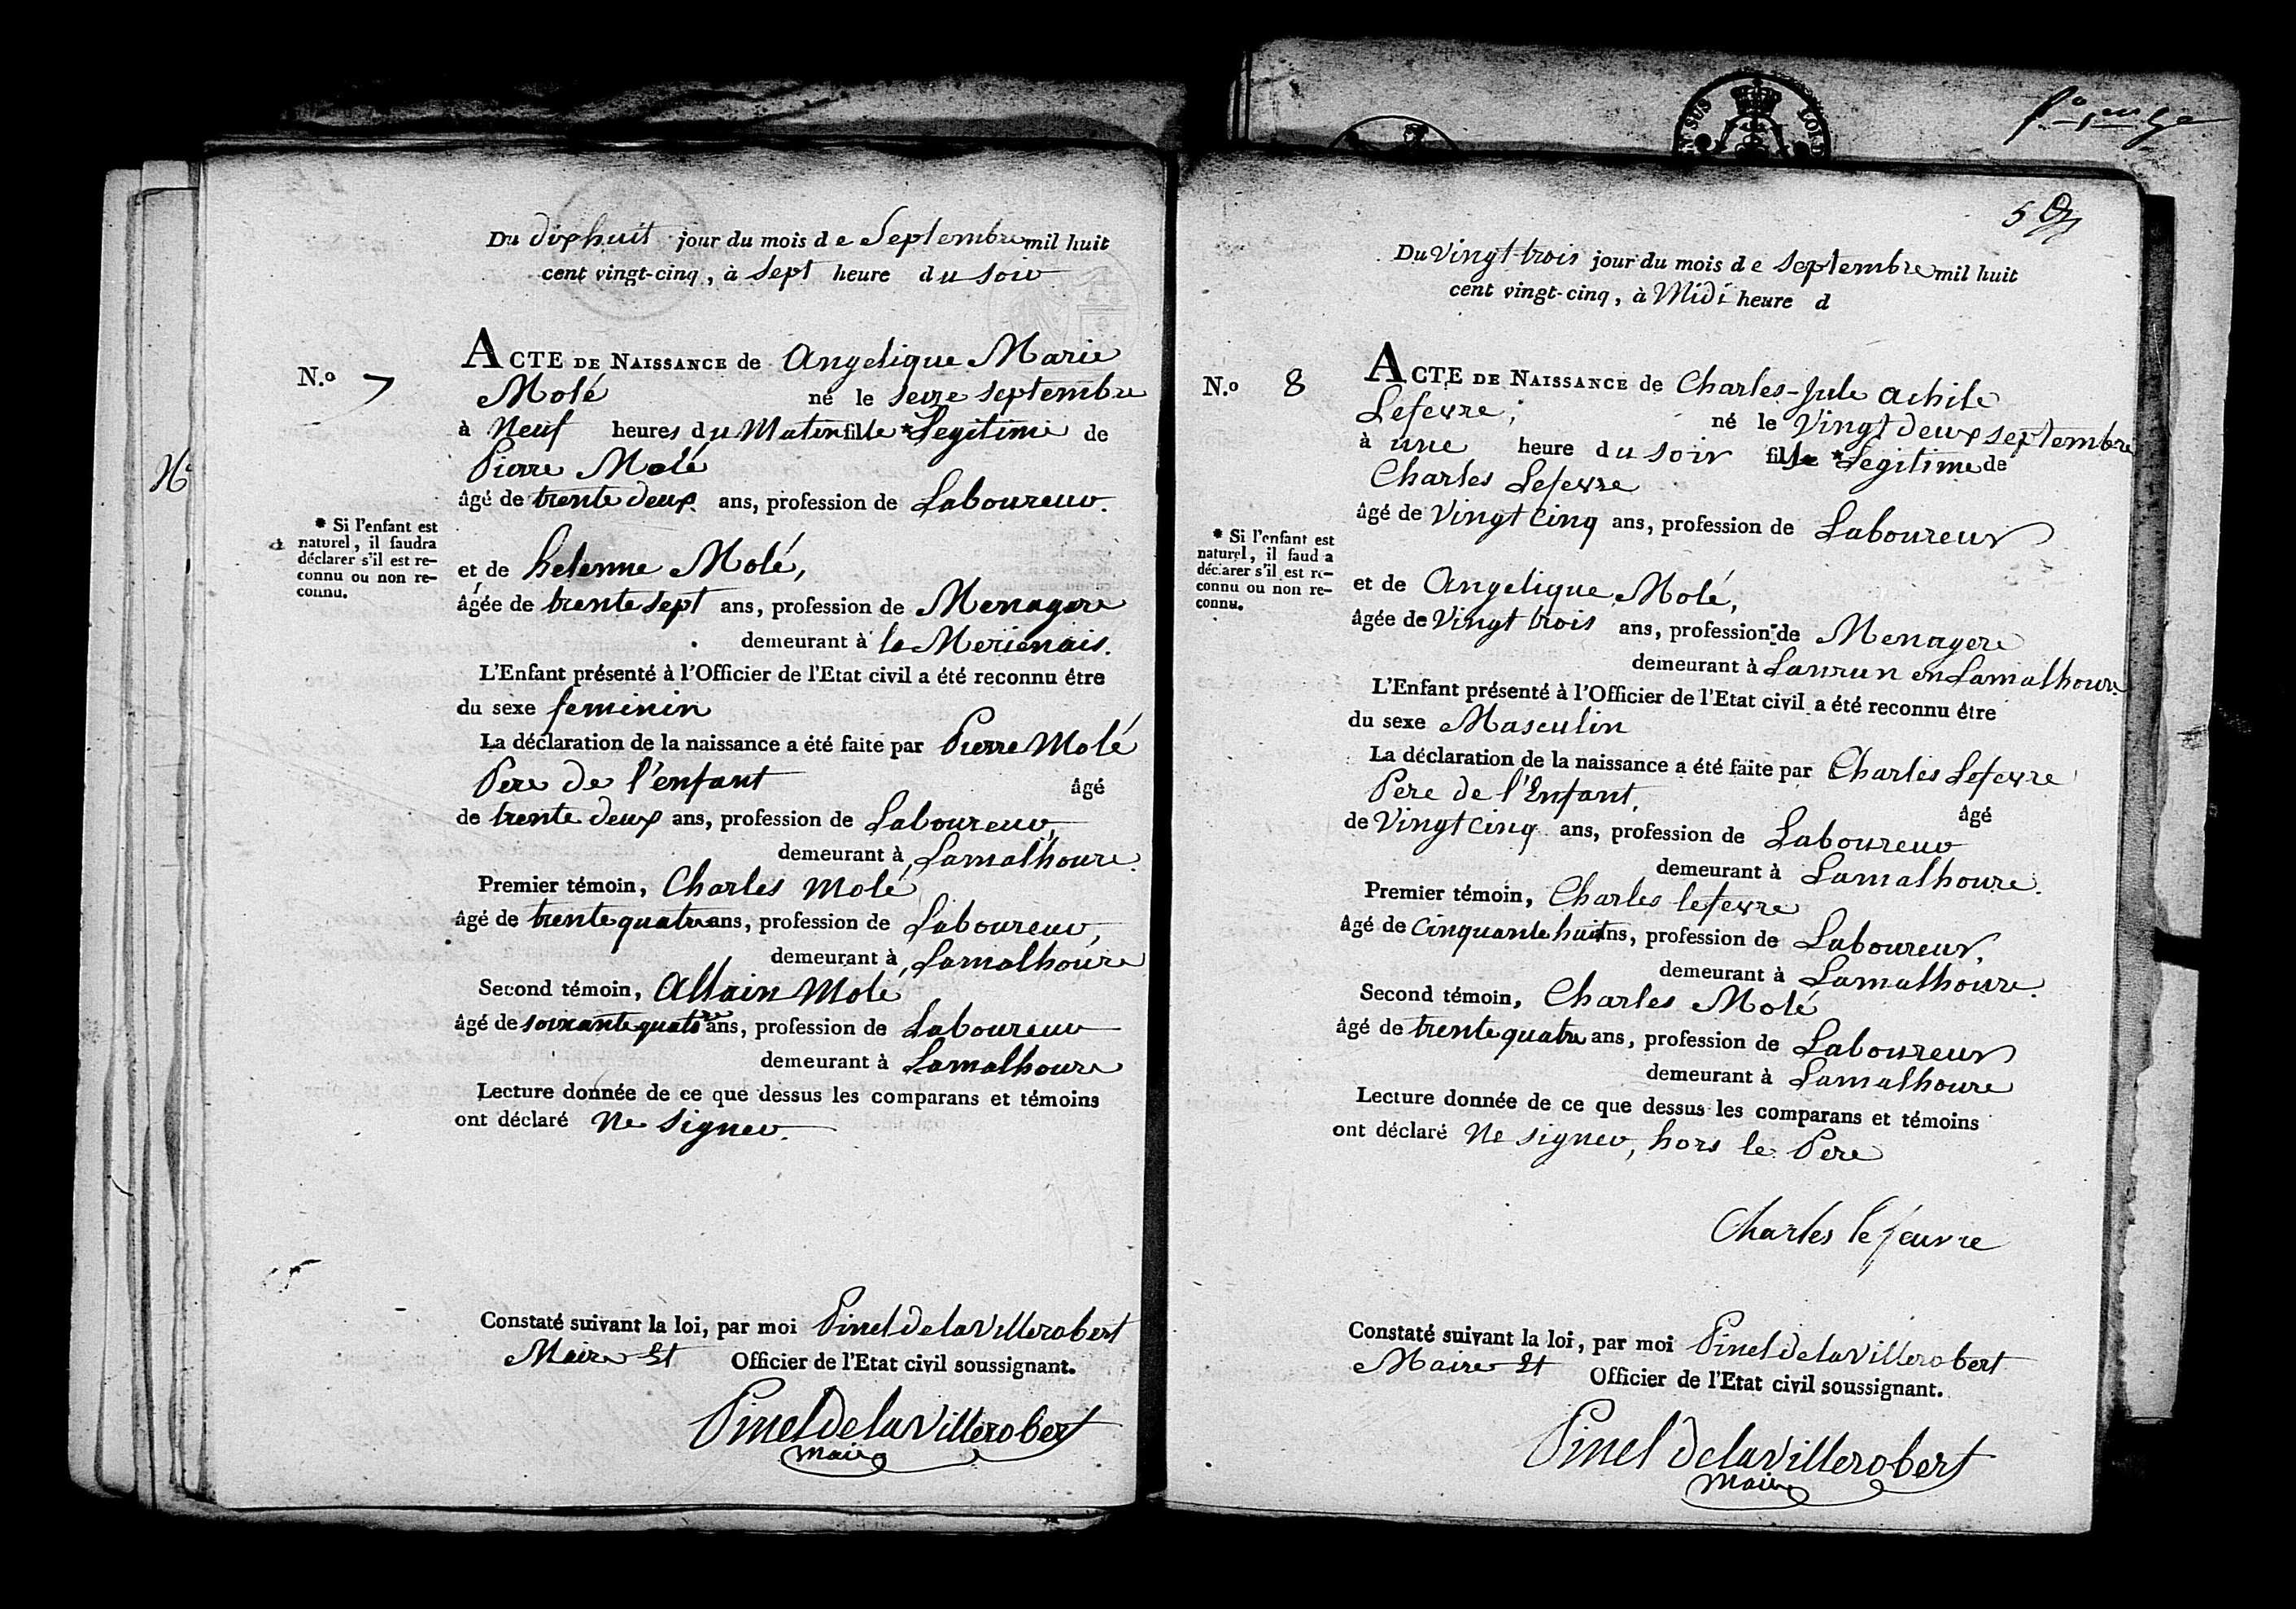 Du dixhuit jour du mois de Septembre mil huit
cent vingt-cinq, à Sept heure du soir
N.o 7
ACTE DE NAISSANCE de Angelique Marie
Molé né le seize septembre
à Neuf heures du Matin fille * Legitime de
Pierre Molé
âgé de trente deux ans, profession de Laboureur.
* Si l'enfant est
naturel, il faudra
déclarer s'il est re-
connu ou non re-
connu.
et de helenne Molé,
âgée de trente sept ans, profession de Menagere
demeurant à la Merienais.
L'Enfant présenté à l'Officier de l'Etat civil a été reconnu être
du sexe feminin
La déclaration de la naissance a été faite par Pierre Molé
Pere de l'enfant âgé
de trente deux ans, profession de Laboureur,
demeurant à Lamalhoure.
Premier témoin, Charles Molé
âgé de trente quatre ans, profession de Laboureur,
demeurant à Lamalhoure
Second témoin, Allain Molé
âgé de soixante quatre ans, profession de Laboureur
demeurant à Lamalhoure
Lecture donnée de ce que dessus les comparans et témoins
ont déclaré Ne Signer.
Constaté suivant la loi, par moi Pinel de la Villerobert
Maire Et Officier de l'Etat civil soussignant.
Pinel de la Villerobert
Maire
SUS LOI
5
Du Vingt-trois jour du mois de septembre mil huit
cent vingt-cinq, à Midi heure d
N.o 8
ACTE DE NAISSANCE de Charles-Jule achile
Lefevre; né le Vingt deux septembre
à une heure du soir fils * Legitime de
Charles Lefevre
âgé de Vingt Cinq ans, profession de Laboureur
* Si l'enfant est
naturel, il faud a
déc arer s'il est re-
connu ou non re-
connu.
et de Angelique Molé,
âgée de Vingt trois ans, profession de Menagere
demeurant à Lanrun en Lamalhoure
L'Enfant présenté à l'Officier de l'Etat civil a été reconnu être
du sexe Masculin
La déclaration de la naissance a été faite par Charles Lefevre
Pere de l'Enfant, âgé
de Vingt Cinq ans, profession de Laboureur
demeurant à Lamalhoure.
Premier témoin, Charles lefevre
âgé de Cinquante huit ans, profession de Laboureur,
demeurant à Lamalhoure.
Second témoin, Charles Molé
âgé de trente quatre ans, profession de Laboureur
demeurant à Lamalhoure
Lecture donnée de ce que dessus les comparans et témoins
ont déclaré Ne signer, hors le Pere
Charles lefeuvre
Constaté suivant la loi, par moi Pinel de la Villerobert
Maire Et Officier de l'Etat civil soussignant.
Pinel de la Villerobert
Maire